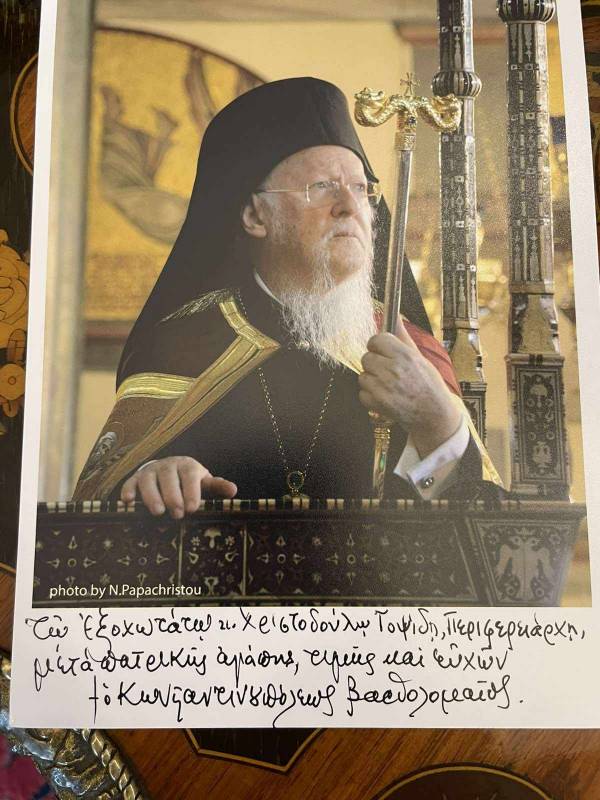 photo by N.Papachristou
Τῷ Ἐξοχωτάτῳ κ. Χριστοδούλῳ Τοψίδῃ, Περιφερειάρχῃ,
μετά πατρικῆς ἀγάπης, τιμῆς καί εὐχῶν
† ὁ Κωνϛαντινȣπόλεως Βαρθολομαῖος.